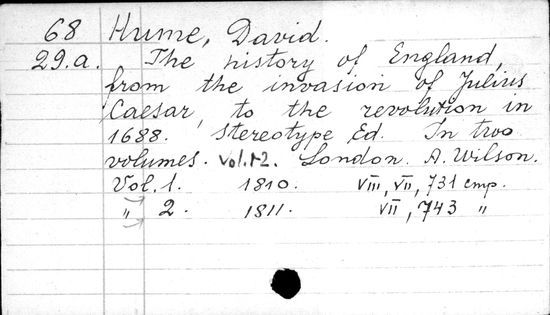 68 Hume, David.
29.a. The history of England,
from the invasion of Julius
Caesar, to the revolution in
1688. Stereotype Ed. In two
volumes. Vol.1-2. London. A. Wilson.
Vol. 1. 1810. VIII, VII, 731 стр.
" 2. 1811. VII, 743 "